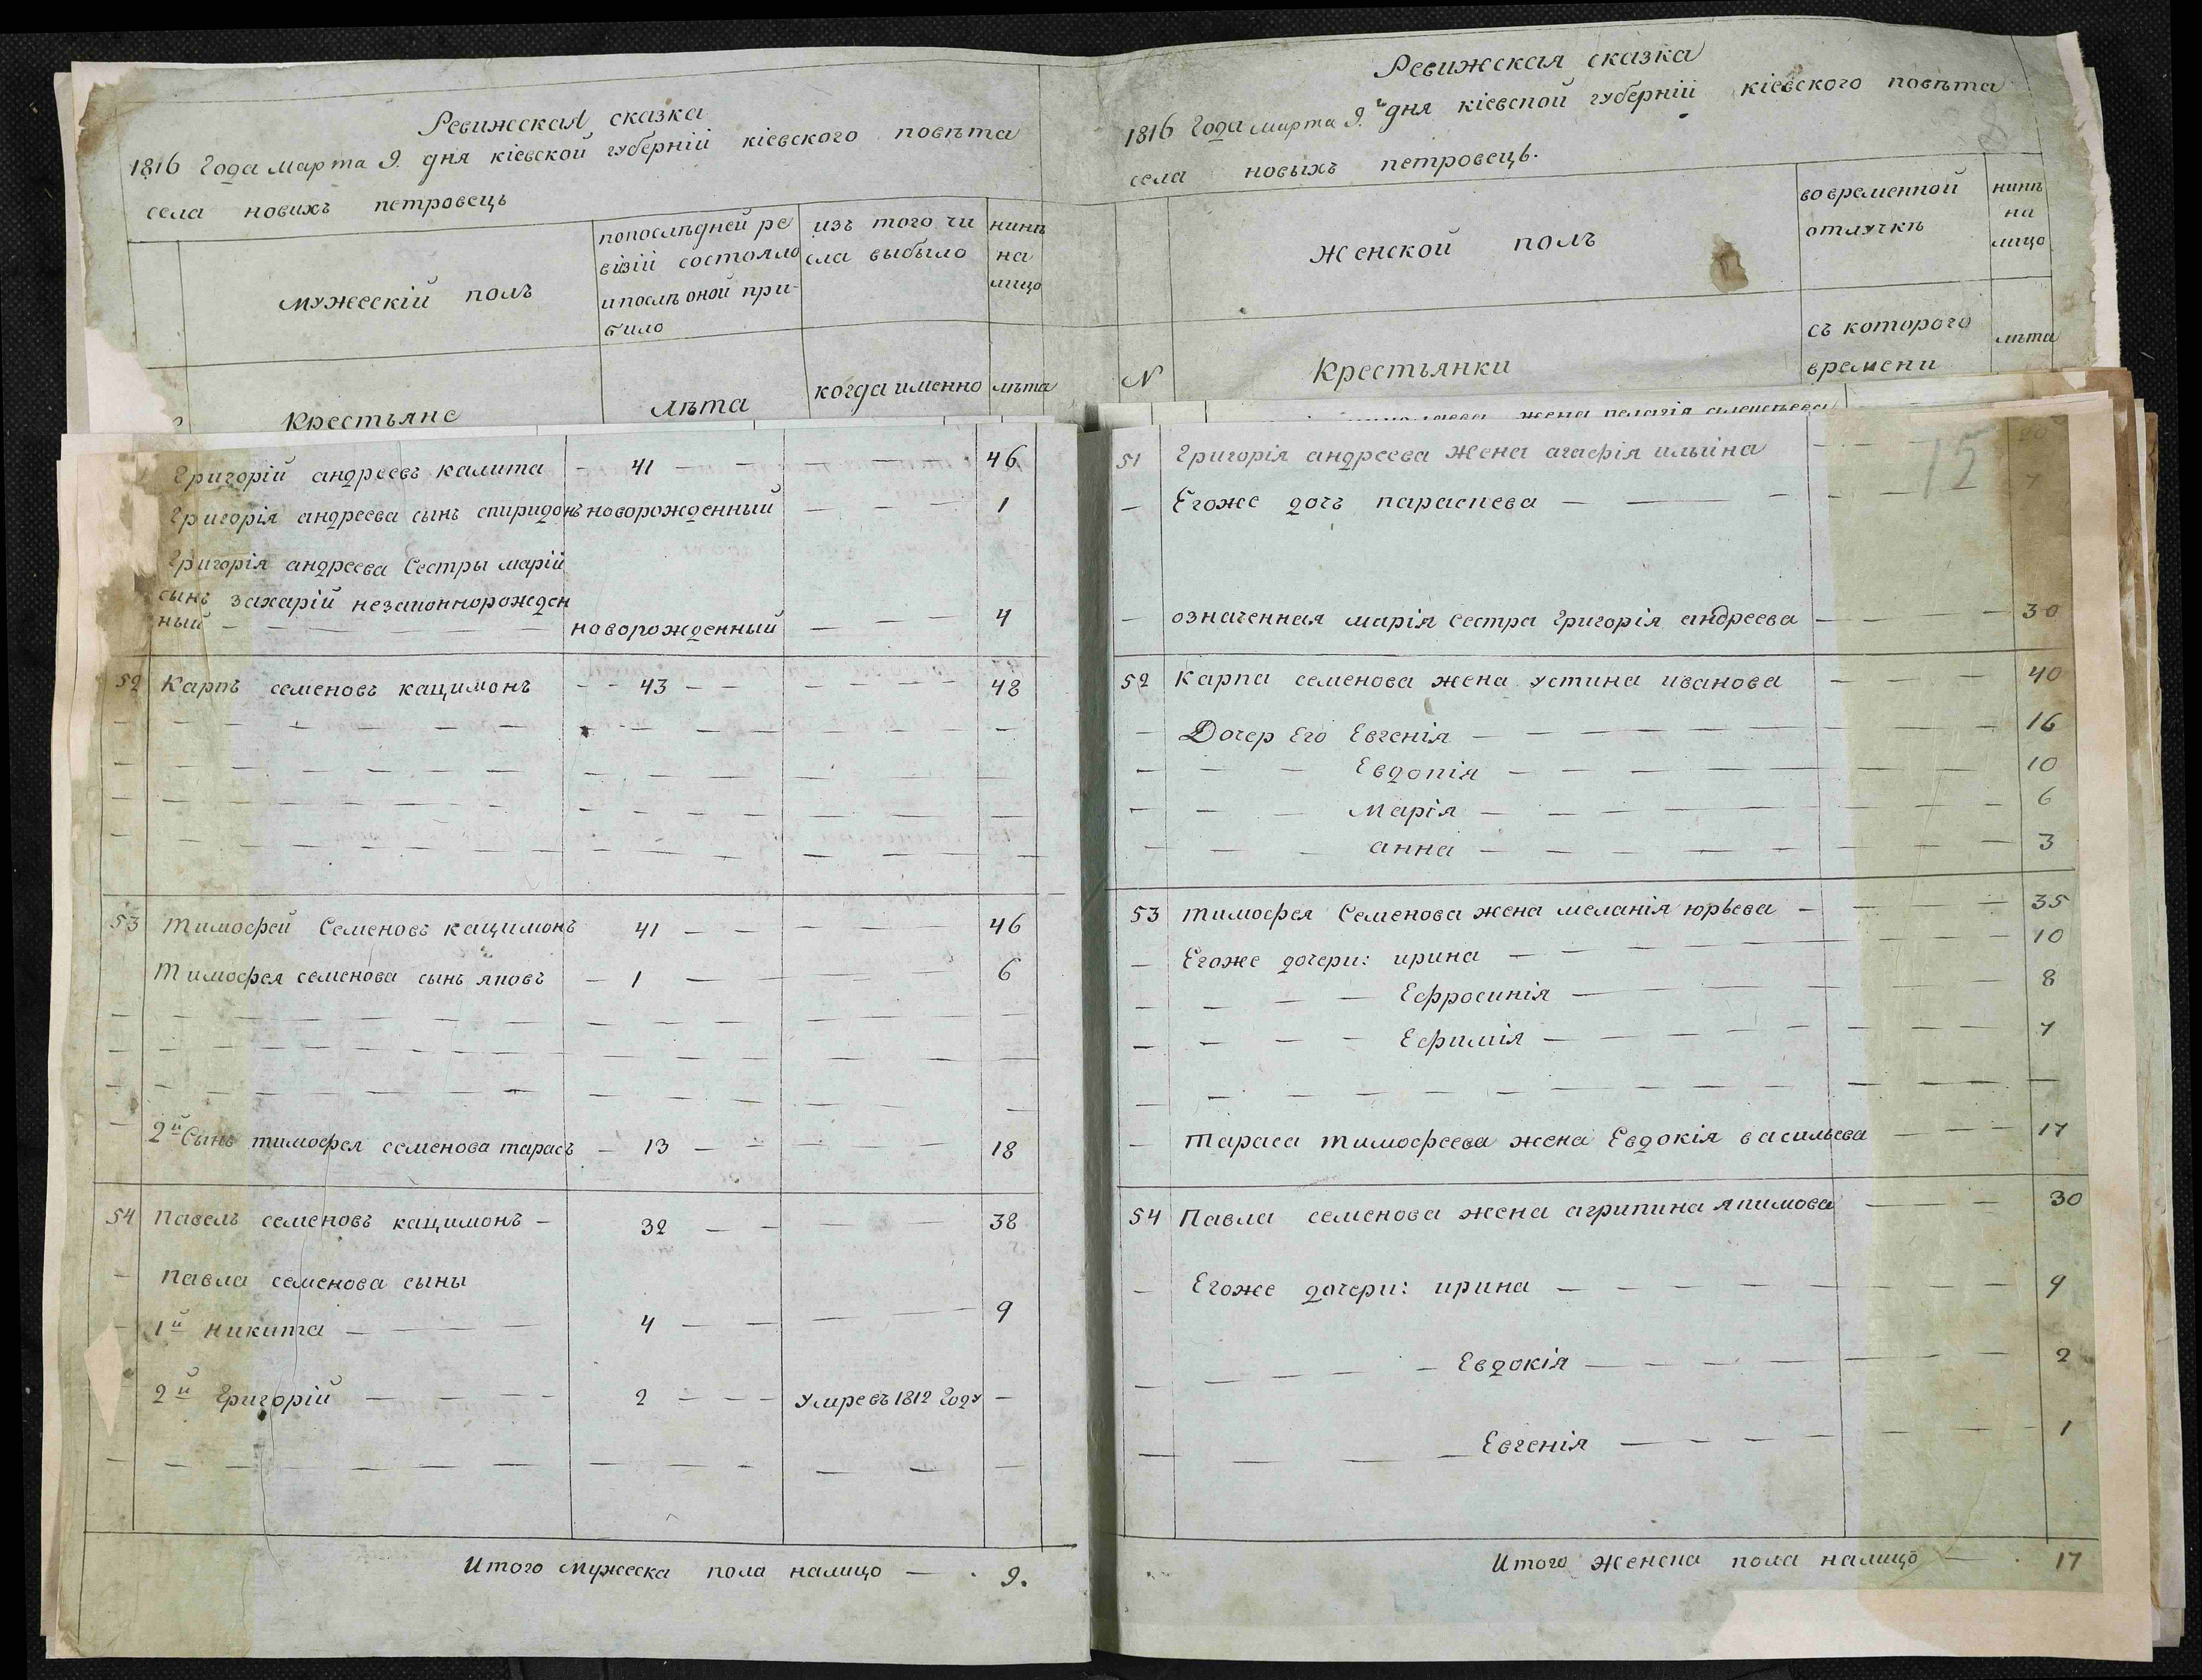 Ревижская сказка
1816 Года марта 9. дня кіевской губерніи кіевского повѣта
села новихъ петровець
мужескій полъ
попослѣдней ре
візіи состояло
ипослѣ оной при-
било
изъ того чи
сла выбыло
нинѣ
на
лицо
Крестьяне
лѣта
когда именно
лѣта
Григорій андреевъ калита - 41 — — — — — 46
Григорія андреева сынъ спиридонъ новорожденный — — — 1
Григорія андреева Сестры маріи
сынъ захарій незаконнорожден
ный — новорожденный — — — 4
52 Карпъ семеновъ кацимонъ - - 43 - - — — — — 48
53 Тимофей Семеновъ кацимонъ 41 — — — — — 46
Тимофея семенова сынъ яковъ — 1 — — — — 6
2й Сынъ тимофея семенова тарасъ — 13 — — — — — 18
54 Павелъ семеновъ кацимонъ — 32 — — — — 38
— павла семенова сыны
1й никита — — — 4 — — — — 9
2й Григорій — — — - 2 — — — Умре въ 1812 Году —
Итого мужеска пола налицо — . 9.
Ревижская сказка
1816 Года марта 9.го дня кіевской губерніи кіевского повѣта
села новыхъ петровець.
Женской полъ
во временной
отлучкѣ
нинѣ
на
лицо
N
Крестьянки
съ которого
времени
лѣта
жена пелагія
15
51 Григорія андреева жена агафія ильина
— Егоже дочъ параскева — — — 7
— означенная марія сестра григорія андреева — — — 30
52 Карпа семенова жена устина иванова — — — — 40
— Дочер Его Евгенія — — — — — 16
— — — Евдокія — — — — — 10
— — — Марія — — — — — 6
— — — анна — — — — — 3
53 Тимофея Семенова жена меланія юрьева — — — — 35
— Егоже дочери: ирина — — — — — 10
— — — — Ефросинія — — — — 8
— — — — Ефимія — — — — 7
— Тараса тимофеева жена Евдокія васильева — — — 17
54 Павла семенова жена агрипина якимова — — — 30
— Егоже дочери: ирина — — — — — 9
— — — — Евдокія — — — — 2
— — — — Евгенія — — — — 1
Итого женска пола налицо — . 17